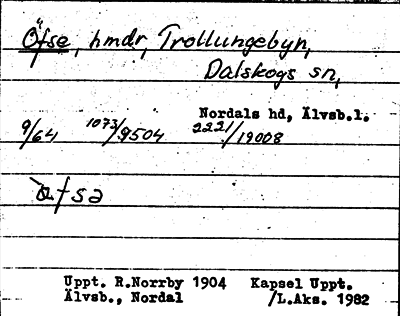 Öfse, hmdr, Trollungebyn,
Dalskogs sn,
Nordals hd, Älvsb.l.
9/64 1073/9504 2221/19008
Uppt. R.Norrby 1904 Kapsel Uppt.
Älvsb., Nordal /L.Aks. 1982